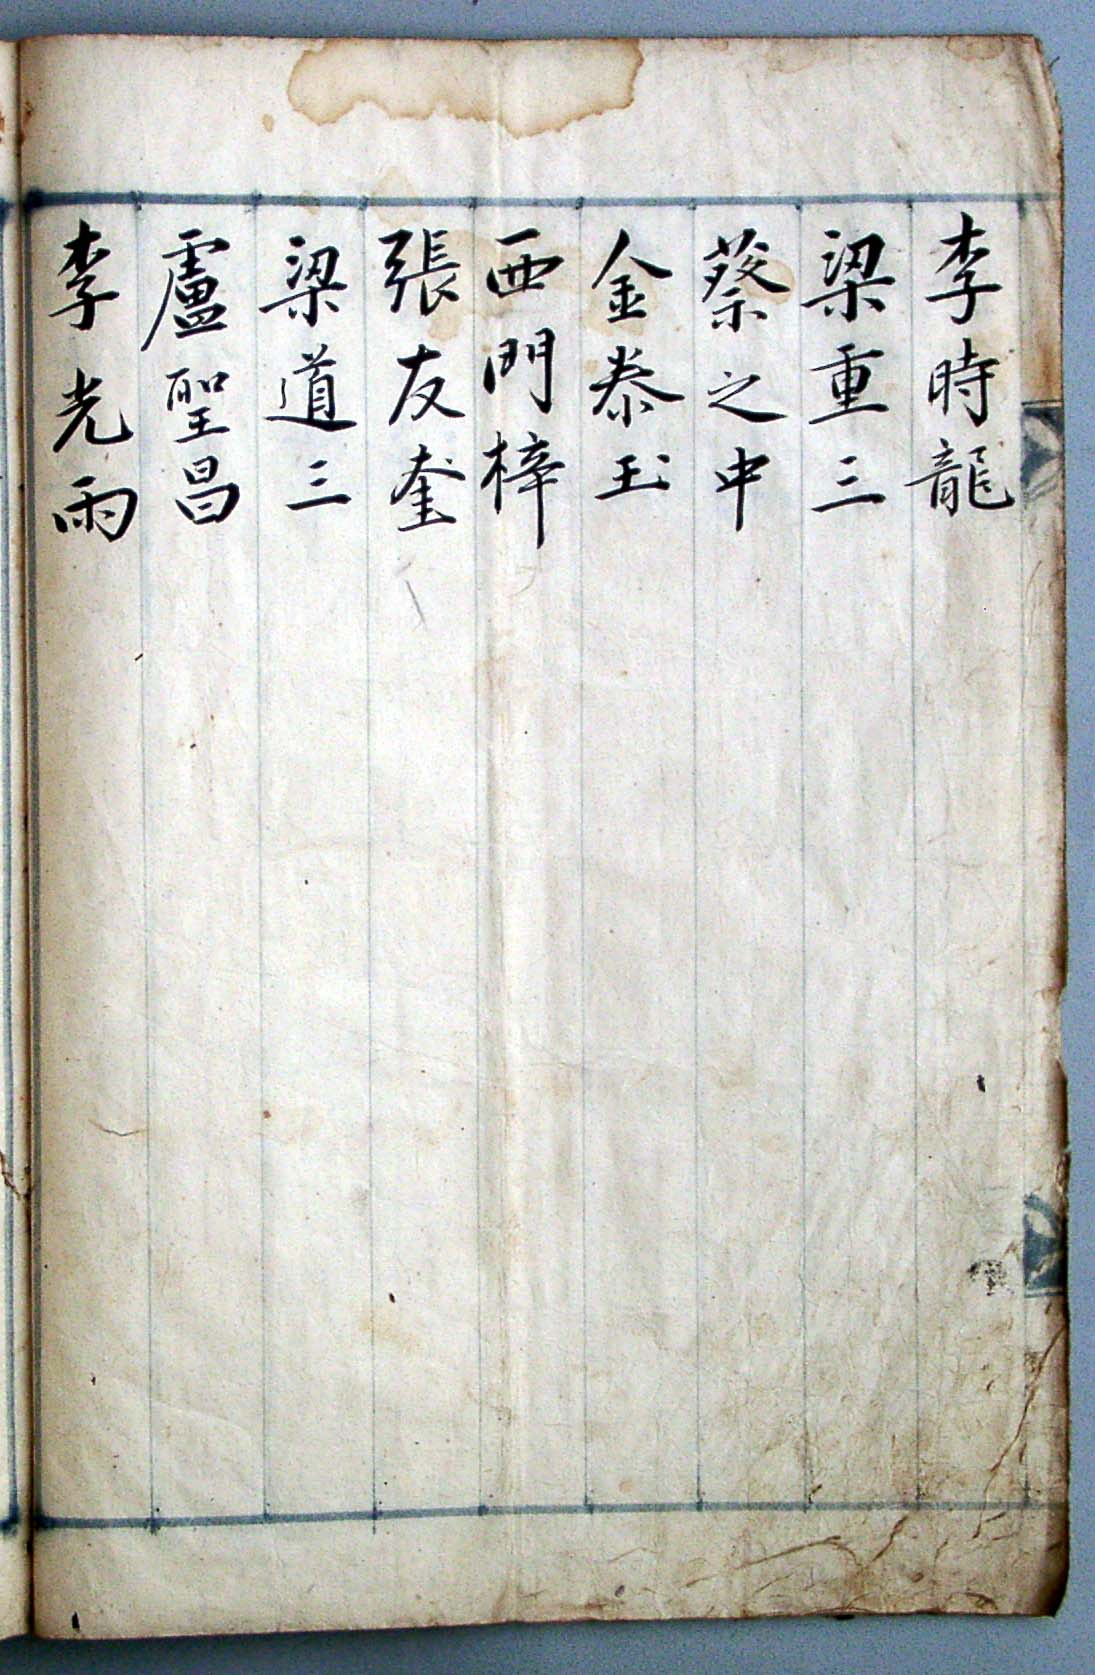 李時龍
梁重三
蔡之中
金泰玉
西門梓
張友奎
梁道三
盧聖昌
李光雨